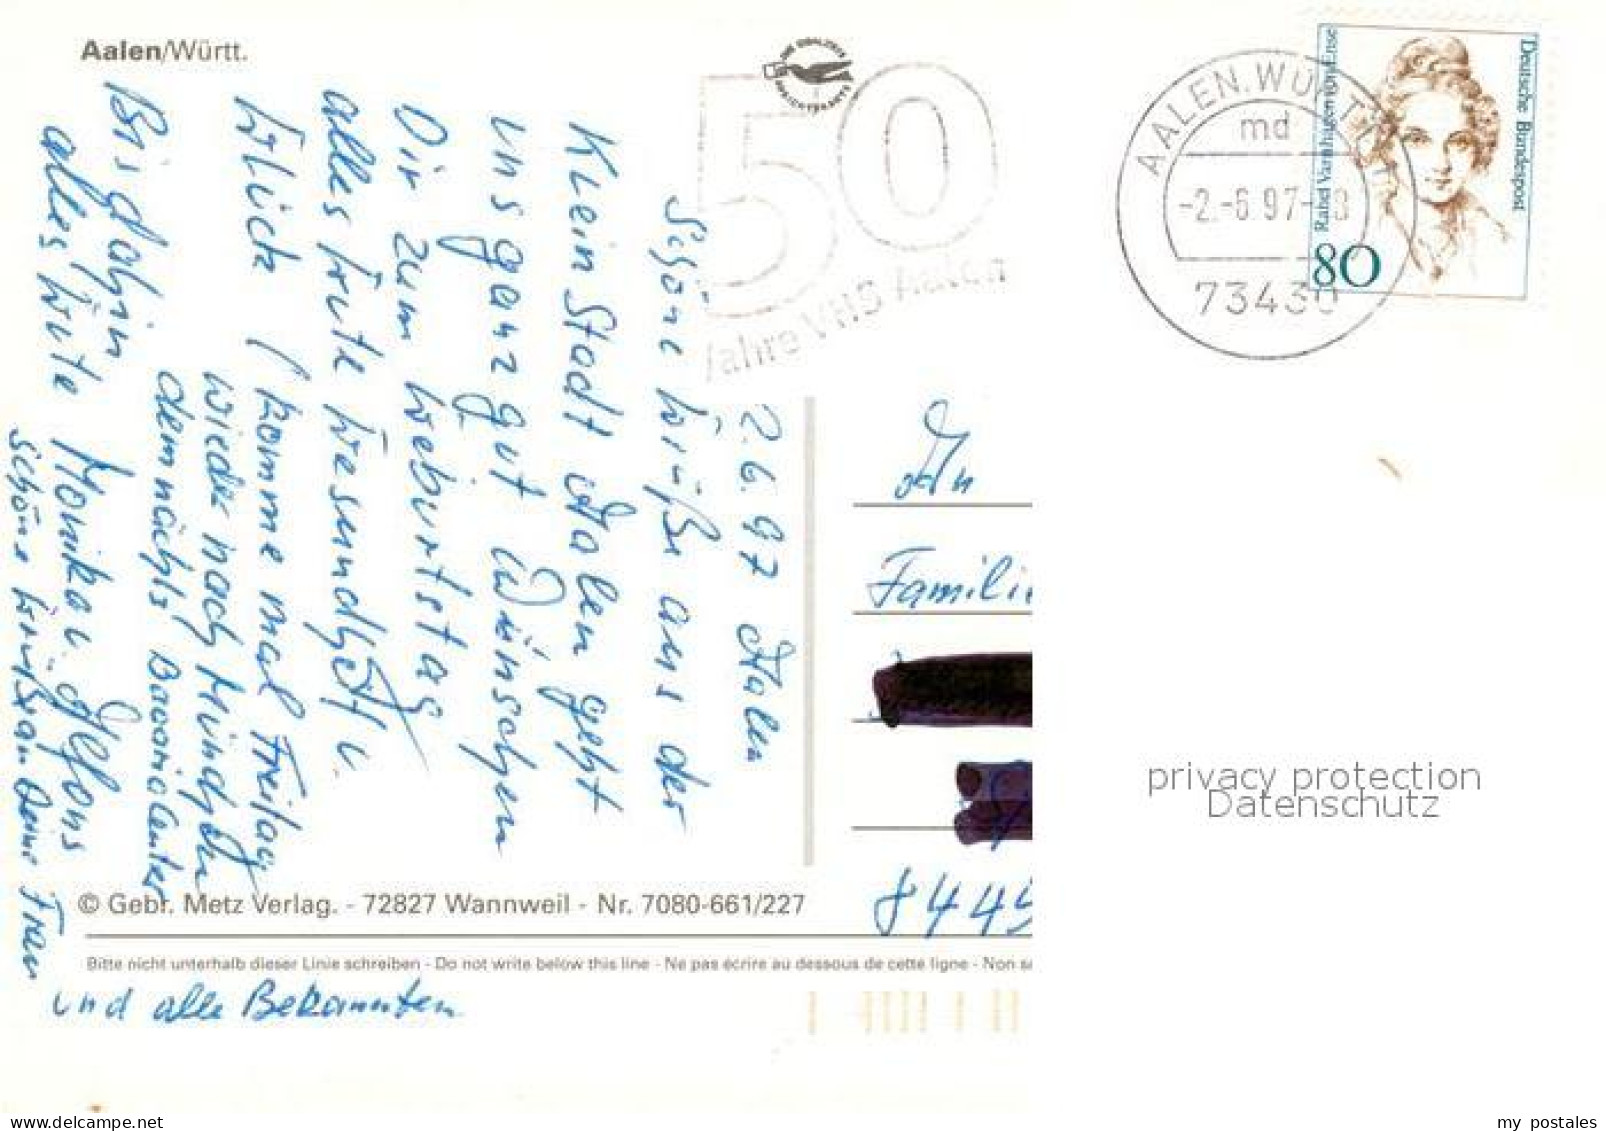 Aalen/Württ.
DIE QUALITÄTS
ANSICHTSKARTE
50
Jahre VHS Aalen
AALEN, WÜRTT 1
md
-2.-6.97-18
73430
Deutsche Bundespost
Rahel Varnhagen von Ense
80
2.6.97 Aalen
Schöne Grüße aus der
Klein Stadt Aalen geht
uns ganz gut Wünschen
Dir zum Geburtstag
alles Gute Gesundheit u.
Glück (komme mal Freitag
wieder nach München
demnächts Bavoria Center
Bis dahin
alles Gute Monika u. Alfons
schöne Grüße an Deine Frau
und alle Bekannten
An
Familie
8445
© Gebr. Metz Verlag. - 72827 Wannweil - Nr. 7080-661/227
Bitte nicht unterhalb dieser Linie schreiben - Do not write below this line - Ne pas écrire au dessous de cette ligne - Non s
privacy protection
Datenschutz
www.delcampe.net
my_postales